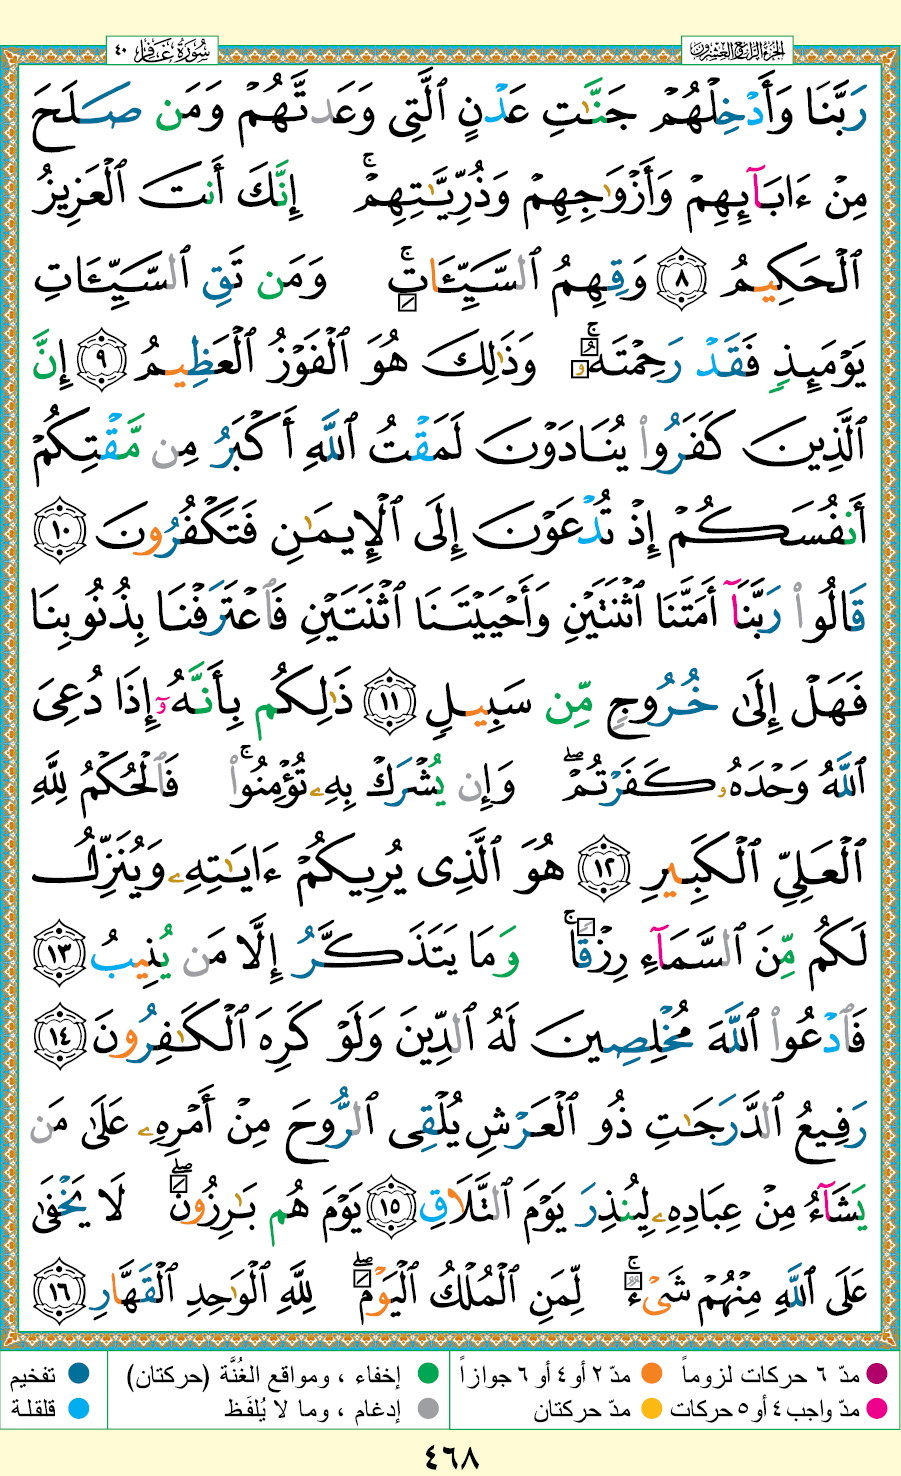 سُورَةُ غَافِر ٤٠
الجُزءُ الرَّابِعُ وَالعِشْرُون
رَبَّنَا وَأَدْخِلْهُمْ جَنَّٰتِ عَدْنٍ ٱلَّتِى وَعَدتَّهُمْ وَمَن صَلَحَ
مِنْ ءَابَآئِهِمْ وَأَزْوَٰجِهِمْ وَذُرِّيَّٰتِهِمْ ۚ إِنَّكَ أَنتَ ٱلْعَزِيزُ
ٱلْحَكِيمُ ٨ وَقِهِمُ ٱلسَّيِّـَٔاتِ ۚ وَمَن تَقِ ٱلسَّيِّـَٔاتِ
يَوْمَئِذٍ فَقَدْ رَحِمْتَهُۥ ۚ وَذَٰلِكَ هُوَ ٱلْفَوْزُ ٱلْعَظِيمُ ٩ إِنَّ
ٱلَّذِينَ كَفَرُوا۟ يُنَادَوْنَ لَمَقْتُ ٱللَّهِ أَكْبَرُ مِن مَّقْتِكُمْ
أَنفُسَكُمْ إِذْ تُدْعَوْنَ إِلَى ٱلْإِيمَٰنِ فَتَكْفُرُونَ ١٠
قَالُوا۟ رَبَّنَآ أَمَتَّنَا ٱثْنَتَيْنِ وَأَحْيَيْتَنَا ٱثْنَتَيْنِ فَٱعْتَرَفْنَا بِذُنُوبِنَا
فَهَلْ إِلَىٰ خُرُوجٍ مِّن سَبِيلٍ ١١ ذَٰلِكُم بِأَنَّهُۥٓ إِذَا دُعِىَ
ٱللَّهُ وَحْدَهُۥ كَفَرْتُمْ ۖ وَإِن يُشْرَكْ بِهِۦ تُؤْمِنُوا۟ ۚ فَٱلْحُكْمُ لِلَّهِ
ٱلْعَلِىِّ ٱلْكَبِيرِ ١٢ هُوَ ٱلَّذِى يُرِيكُمْ ءَايَٰتِهِۦ وَيُنَزِّلُ
لَكُم مِّنَ ٱلسَّمَآءِ رِزْقًا ۚ وَمَا يَتَذَكَّرُ إِلَّا مَن يُنِيبُ ١٣
فَٱدْعُوا۟ ٱللَّهَ مُخْلِصِينَ لَهُ ٱلدِّينَ وَلَوْ كَرِهَ ٱلْكَٰفِرُونَ ١٤
رَفِيعُ ٱلدَّرَجَٰتِ ذُو ٱلْعَرْشِ يُلْقِى ٱلرُّوحَ مِنْ أَمْرِهِۦ عَلَىٰ مَن
يَشَآءُ مِنْ عِبَادِهِۦ لِيُنذِرَ يَوْمَ ٱلتَّلَاقِ ١٥ يَوْمَ هُم بَٰرِزُونَ ۖ لَا يَخْفَىٰ
عَلَى ٱللَّهِ مِنْهُمْ شَىْءٌ ۚ لِّمَنِ ٱلْمُلْكُ ٱلْيَوْمَ ۖ لِلَّهِ ٱلْوَٰحِدِ ٱلْقَهَّارِ ١٦
مدّ ٦ حركات لزوماً مدّ ٢ أو ٤ أو ٦ جوازاً إخفاء ، ومواقع الغُنَّة (حركتان) تفخيم
مدّ واجب ٤ أو ٥ حركات مدّ حركتان إدغام ، وما لا يُلفَظ قلقلة
٤٦٨